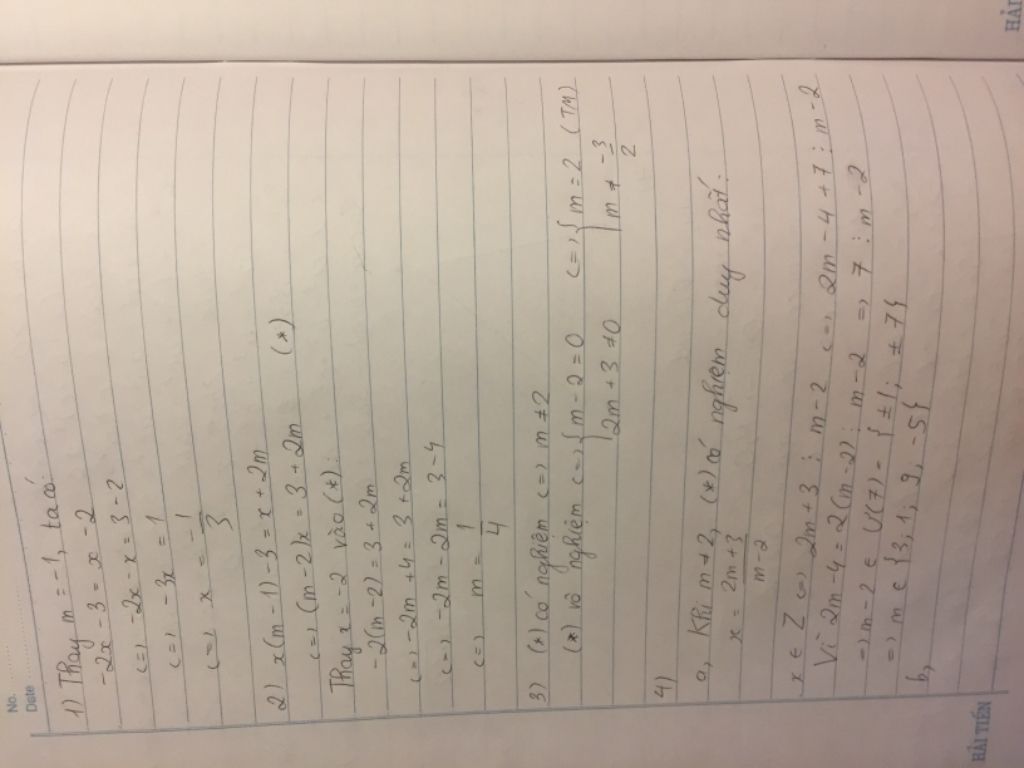 No.
Date
1) Thay m = -1, ta có:
-2x - 3 = x - 2
<=> -2x - x = 3 - 2
<=> -3x = 1
<=> x = -1/3
2) x(m-1) - 3 = x + 2m (*)
<=> (m-2)x = 3 + 2m
Thay x = -2 vào (*):
-2(m-2) = 3 + 2m
<=> -2m + 4 = 3 + 2m
<=> -2m - 2m = 3 - 4
<=> m = 1/4
3) (*) có nghiệm <=> m ≠ 2
(*) vô nghiệm <=> { m - 2 = 0 <=> { m = 2 (TM)
2m + 3 ≠ 0 m ≠ -3/2
4)
a, Khi m ≠ 2, (*) có nghiệm duy nhất:
x = 2m+3/m-2
x ∈ Z <=> 2m + 3 ⋮ m - 2 <=> 2m - 4 + 7 ⋮ m - 2
Vì 2m - 4 = 2(m-2) ⋮ m - 2 => 7 ⋮ m - 2
=> m - 2 ∈ Ư(7) = {±1; ±7}
=> m ∈ {3, 1, 9, -5}
b,
HẢI TIẾN
HẢI